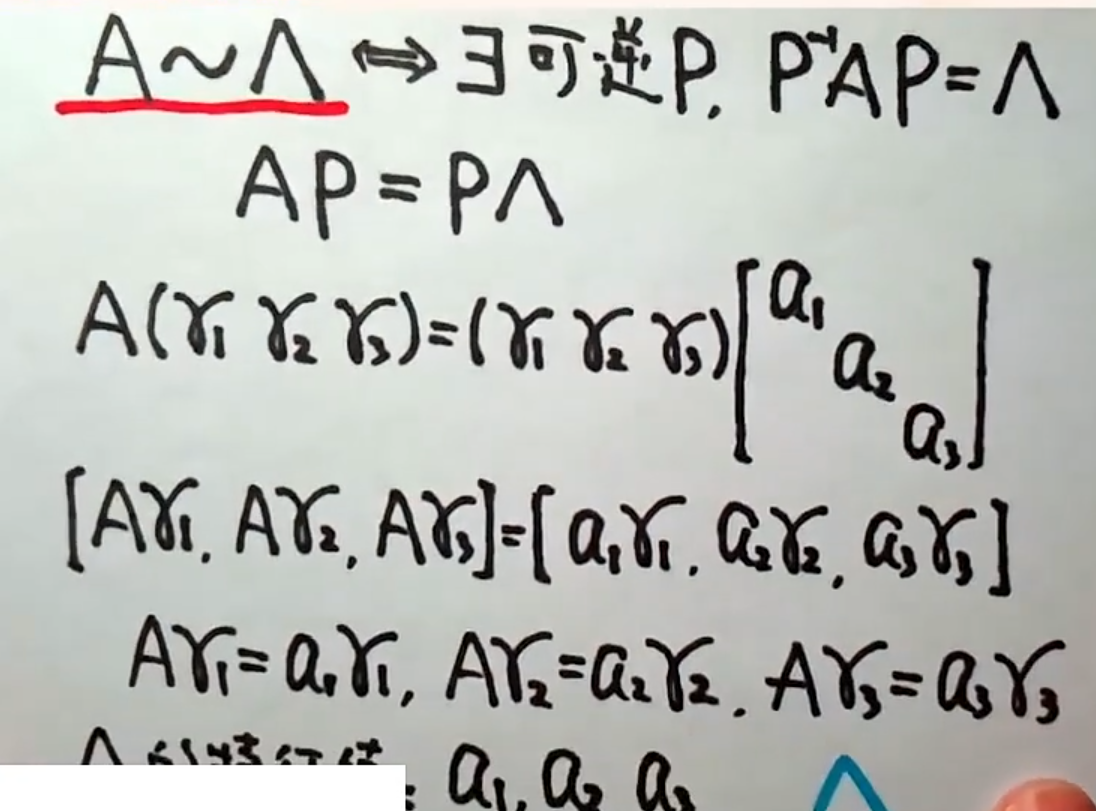 A∼Λ ⇔ ∃可逆P, P⁻¹AP=Λ
AP=PΛ
A(γ₁ γ₂ γ₃)=(γ₁ γ₂ γ₃)[a₁ a₂ a₃]
[Aγ₁, Aγ₂, Aγ₃]=[a₁γ₁, a₂γ₂, a₃γ₃]
Aγ₁=a₁γ₁, Aγ₂=a₂γ₂, Aγ₃=a₃γ₃
a₁, a₂ a₃